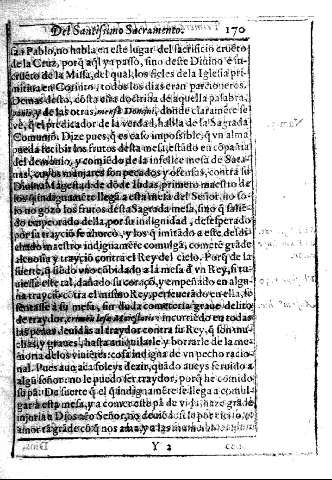 Del Santissimo Sacramento. 170
sa s. Pablo, no habla en este lugar del sacrificio cruẽto
de la Cruz, porq̃ aq̃l ya passò, sino deste Diuino è in-
cruẽto de la Missa, del qual, los fieles de la Iglesia pri-
mitiua en Corinto, todos los dias eran parcioneros.
Demas desto, cõsta esta doctrina de aquella palabra,
panis, y de las otras, mensa Domini, donde claramẽte se
vè, q̃ el predicador de la verdad, habla de la Sagrada
Comuniõ. Dize pues, q̃ es caso impossible, q̃ vn alma
pueda recibir los frutos desta mesa, estãdo en cõpañia
del demonio, y comiẽdo de la infelice mesa de Sata-
nas, cuyos manjares son pecados y ofensas, contra su
Diuina Magestad de dõde Iudas, primero maestro de
los q̃ indignamẽte llegã a esta mesa del Señor, no so-
lo no gozò los frutos desta Sagrada mesa, sino q̃ salie-
do empeorado della, por su indignidad, desesperado
por su trayciõ se ahorcò, y los q̃ imitado a este desdi-
chado maestro indignamẽte comulgã, cometẽ grãde
aleuosia y trayciõ contra el Rey del cielo. Porq̃ de la
suerte, q̃ siẽdo vno cõbidado a la mesa d̃ vn Rey, si tu-
uiesse este tal, dañado su coraçõ, y empeñado en algu-
na trayciõ cõtra el mismo Rey, perseuerado en ella, se
sentasse a su mesa, sin duda cometeria graue delito
de traydor, crimen lesæ Maiestatis: è incurriẽdo en todas
las penas deuidas al traydor contra su Rey, q̃ son mu-
chas, y graues, hasta aniquilarle y borrarle de la me-
moria de los viuiẽtes: cosa indigna de vn pecho racio-
nal. Pues aũq̃ acà soleys dezir, quãdo aueys seruido a
algũ señor: no le puedo ser traydor, porq̃ he comido
su pã. De suerte q̃ el q̃ indignamẽte se llega a comul-
gar a esta mesa, y a comer este pã de vida, haze grãde
injuria a Dios nr̃o Señor, no deuiẽdose le por cierto, el
amor tã grãde cõ q̃ nos ama, y a las innumerables
Y 2